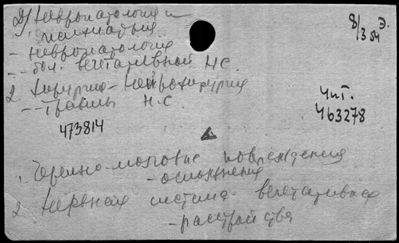 2) Невропатология и
психиатрия
- Невропатология
-- бол. вегетативной Н.С.
2 Хирургия - Нейрохирургия
-- травмы Н.С.
8/3 54 Э.
Чит.
463278
473814
1. Черепно-мозговые повреждения
- осложнения
2 Нервная система вегетативная
- расстройства